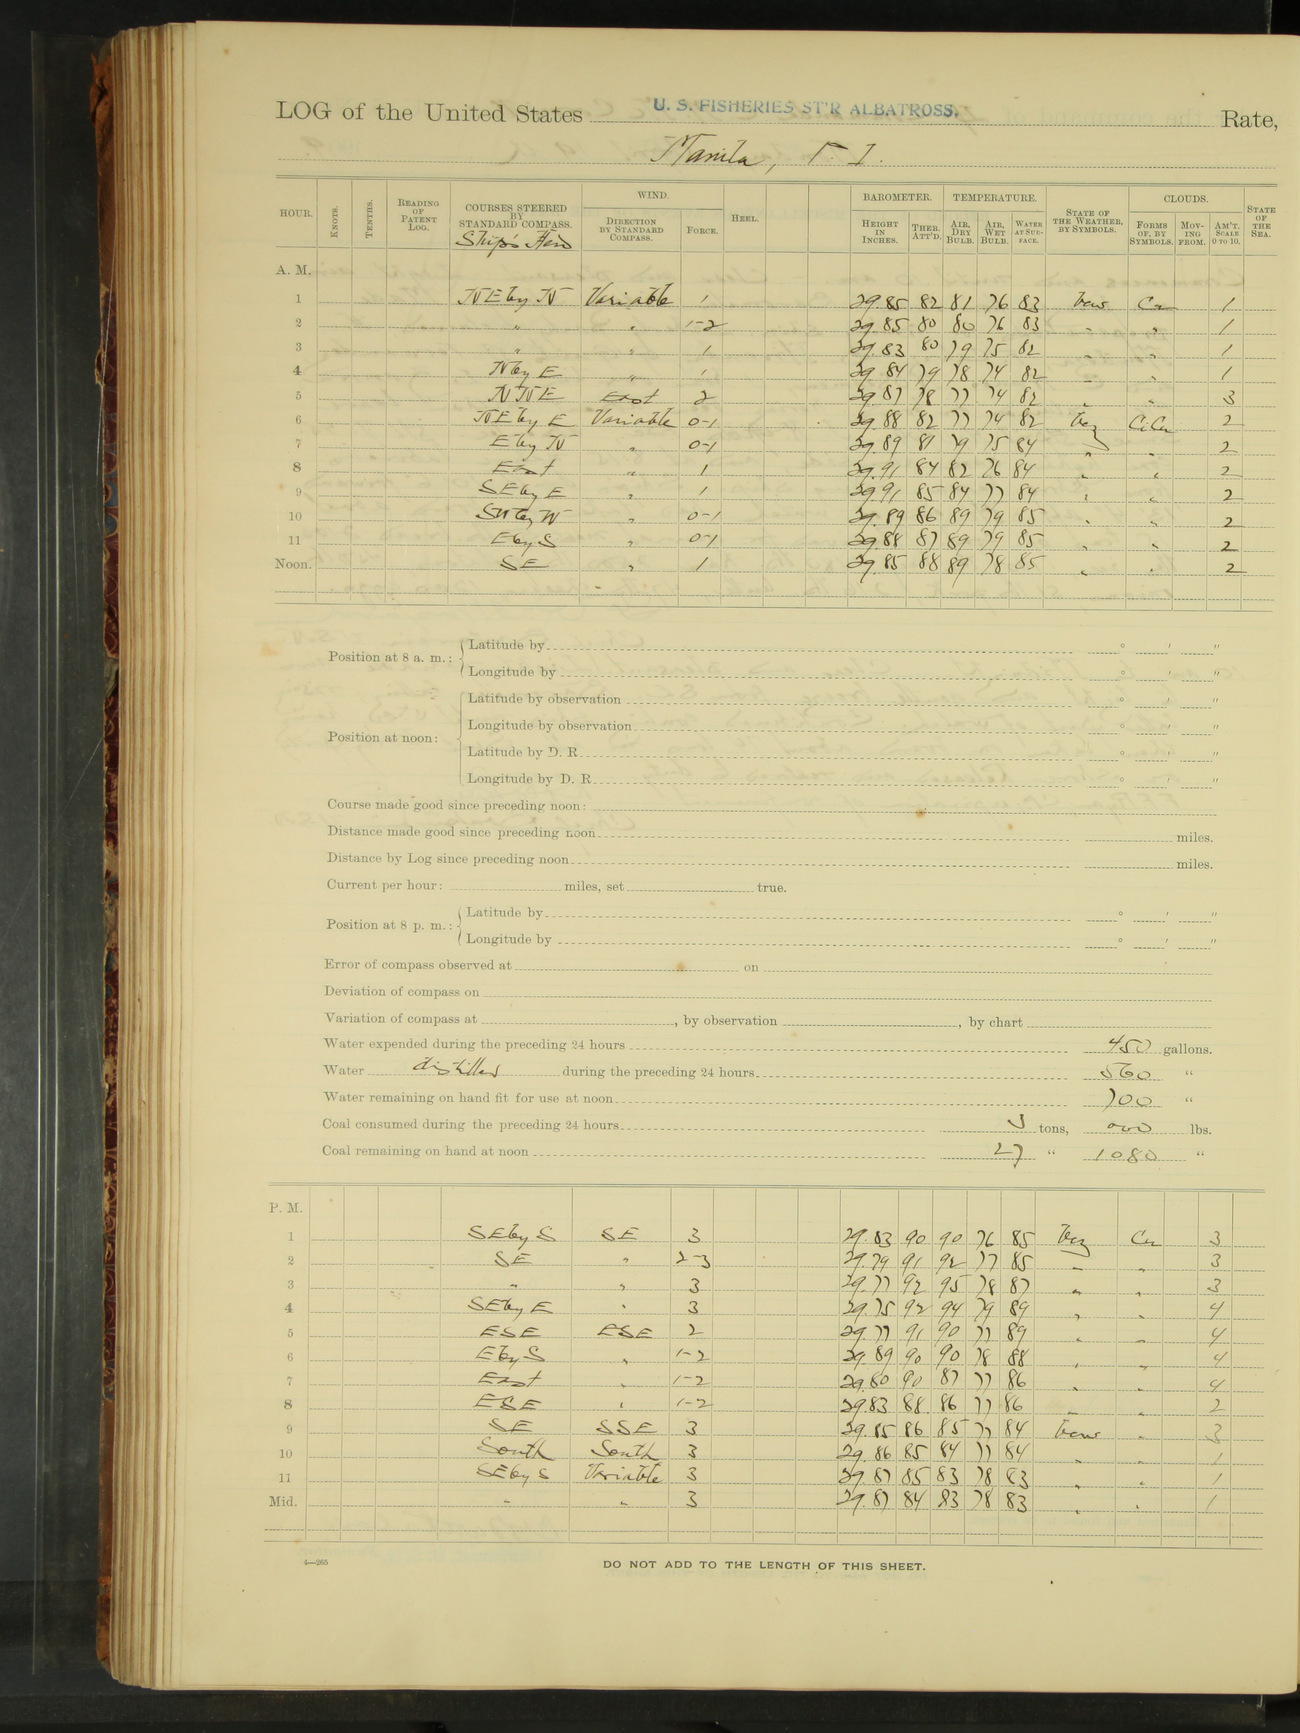 LOG of the United States U. S. FISHERIES ST'R ALBATROSS. Rate,
Manila, P. I.
HOUR. KNOTS. TENTHS. READING OF PATENT LOG. COURSES STEERED BY STANDARD COMPASS. Ship's Head WIND. DIRECTION BY STANDARD COMPASS. FORCE. HEEL. BAROMETER. HEIGHT IN INCHES. THER. ATT'D. TEMPERATURE. AIR, DRY BULB. AIR, WET BULB. WATER AT SURFACE. STATE OF THE WEATHER, BY SYMBOLS. CLOUDS. FORMS OF, BY SYMBOLS. MOVING FROM. AM'T. SCALE 0 TO 10. STATE OF THE SEA.
A. M.
1 NE by N Variable 1 29.85 82 81 76 83 Cu 1
2 " " 1-2 29.85 80 80 76 83 " " 1
3 " " 1 29.83 80 79 75 82 " " 1
4 N by E " 1 29.84 79 78 74 82 " " 1
5 NNE East 2 29.87 78 77 74 82 " " 3
6 NE by E Variable 0-1 29.88 82 77 74 82 bcz CiCu 2
7 E by N " 0-1 29.89 81 79 75 84 " " 2
8 East " 1 29.91 84 82 76 84 " " 2
9 SE by E " 1 29.91 85 84 77 84 " " 2
10 SW by W " 0-1 29.89 86 89 79 85 " " 2
11 E by S " 0-1 29.88 87 89 79 85 " " 2
Noon. SE " 1 29.85 88 89 78 85 " " 2
Position at 8 a. m.: Latitude by ° ' "
Longitude by ° ' "
Position at noon: Latitude by observation ° ' "
Longitude by observation ° ' "
Latitude by D. R. ° ' "
Longitude by D. R. ° ' "
Course made good since preceding noon:
Distance made good since preceding noon miles.
Distance by Log since preceding noon miles.
Current per hour: miles, set true.
Position at 8 p. m.: Latitude by ° ' "
Longitude by ° ' "
Error of compass observed at on
Deviation of compass on
Variation of compass at , by observation , by chart
Water expended during the preceding 24 hours 450 gallons.
Water distilled during the preceding 24 hours 560 "
Water remaining on hand fit for use at noon 700 "
Coal consumed during the preceding 24 hours 3 tons, 000 lbs.
Coal remaining on hand at noon 27 " 1080 "
P. M.
1 SE by S SE 3 29.83 90 90 76 85 bcz Cu 3
2 SE " 2-3 29.79 91 92 77 85 " " 3
3 " " 3 29.77 92 95 78 87 " " 3
4 SE by E " 3 29.75 92 94 79 89 " " 4
5 ESE ESE 2 29.77 91 90 77 89 " " 4
6 E by S " 1-2 29.89 90 90 78 88 " " 4
7 East " 1-2 29.80 90 87 77 86 " " 4
8 ESE " 1-2 29.83 88 86 77 86 " " 2
9 SE SSE 3 29.85 86 85 77 84 " 3
10 South South 3 29.86 85 84 77 84 " " 1
11 SE by S Variable 3 29.87 85 83 78 83 " " 1
Mid. " " 3 29.87 84 83 78 83 " " 1
4—265
DO NOT ADD TO THE LENGTH OF THIS SHEET.